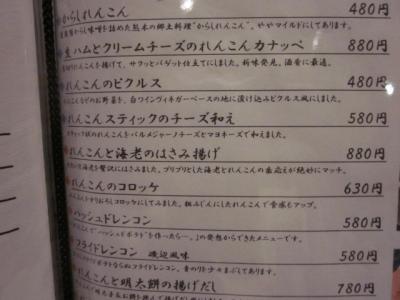 からしれんこん 480円
からし味噌を詰めた熊本の郷土料理"からしれんこん"。ややマイルドにしてあります。
生ハムとクリームチーズのれんこんカナッペ 880円
れんこんを揚げて、サクッとバゲット仕立てにしました。新味発見。酒肴に最適。
れんこんのピクルス 480円
などのお野菜を、白ワインヴィネガーベースの地に漬け込みピクルス風にしました。
れんこんスティックのチーズ和え 580円
スティック状のれんこんをパルメジャーノチーズとマヨネーズで和えました。
れんこんと海老のはさみ揚げ 880円
海老を贅沢にはさみました。プリプリとした海老とれんこんの歯応えが絶妙にマッチ。
れんこんのコロッケ 630円
すりおろしコロッケにしてみました。粗みじんにしたれんこんで食感もアップ。
ハッシュドレンコン 580円
で"ハッシュドポテト"を作ったら…。の発想からできたメニューです。
フライドレンコン 磯辺風味 580円
ポテトならぬフライドレンコン。青のりトッテモまぶしてあります。
れんこんと明太餅の揚げだし 780円